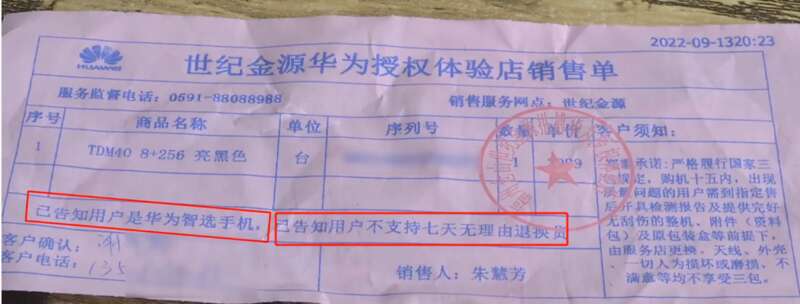 HUAWEI
2022-09-1320:23
世纪金源华为授权体验店销售单
服务监督电话：0591-88088988
销售服务网点：世纪金源
序号 商品名称 单位 序列号 数量 单价 客户须知：
1 TDM40 8+256 亮黑色 台 1
承诺:严格履行国家三
规定,购机十五内,出现
质量问题的用户需到指定售
后开具检测报告及提供完好
无刮伤的整机、附件（资料
包）及原包装盒等前提下,
由服务店更换,天线、外壳
、一切人为损坏或磨损,不
满意等均不享受三包。
已告知用户是华为智选手机，已告知用户不支持七天无理由退换货
客户确认：
客户电话：135
销售员：朱慧芳